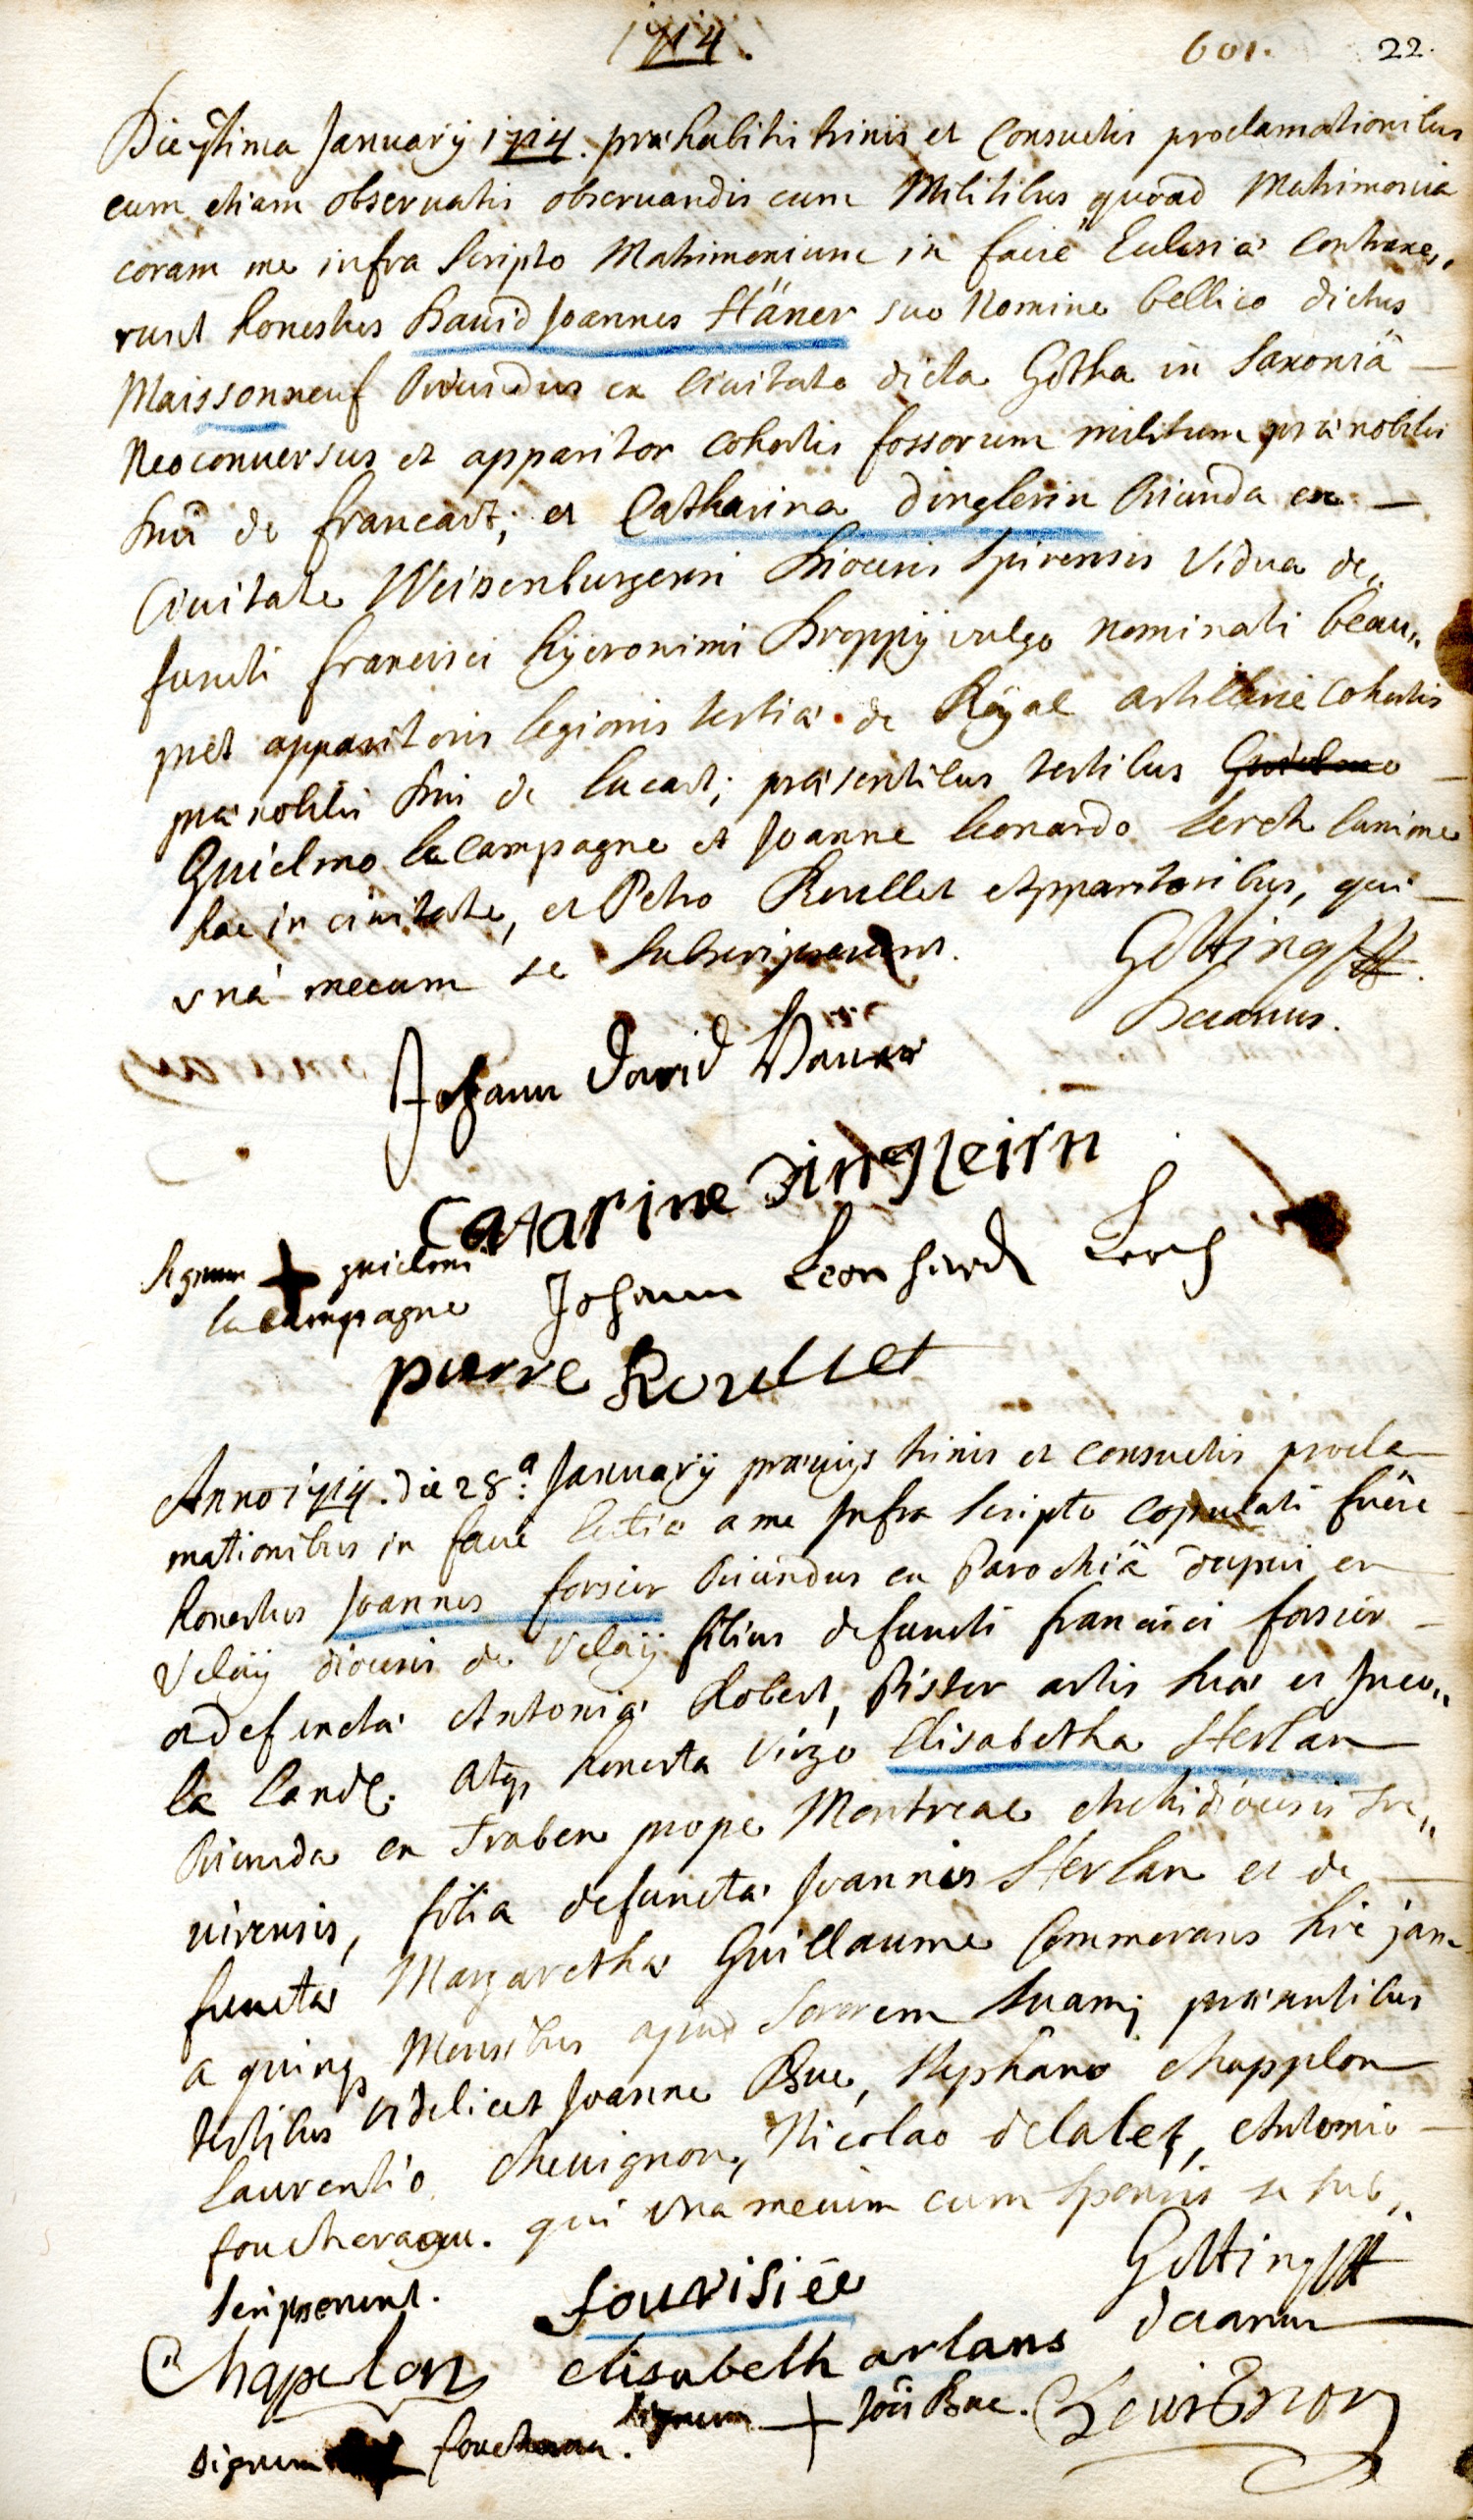 1714.
601. 22.
Die 7tima Januarÿ 1714. præhabitis trinis et Consuetis proclamationibus
cum etiam observatis observandis cum Militibus quoad Matrimonia
coram me infra Scripto Matrimonium in facie Ecclesiæ Contraxe„
runt honestus David Joannes Häner suo Nomine bellico dictus
Maissonneuf Oriundus ex Civitate dicta Gotha in Saxoniä
Neoconversus et apparitor Cohortis fossorum militum prænobilis
Dni de francart; et Catharina Dinglerin Oriunda ex
Civitate Weissenburgensi Diocesis Spirensis Vidua de„
functi francisci Hÿeronimi Droppÿ vulgo nominati beau„
met apparitoris legionis tertiæ de Röyal artillerie Cohortis
prænobilis Dni de lucart; præsentibus testibus Guielmo
Guielmo la Campagne et Joanne leonardo lerch lanione
hac in civitate, et Petro Roullet Apparitoribus, qui
una mecum se Subscripserunt.
Götting
Decanus.
Johann David Häner
Catarine Dingleirn
Signum + guielmi
la campagne
Johann Leonhard Lerch
pierre Roullet
Anno 1714. die 28.a Januarÿ prævÿs trinis et consuetis procla
mationibus in facie Ecctiæ a me Infra Scripto copulati fuere
honestus Joannes forsier Oriundus ex Parochiä dupui en
Velaÿ diocesis de Velaÿ filius defuncti francisci forsier
et defunctæ Antoniæ Robert, Pistor artis suæ et Inco„
la land. atq3 honesta Virgo Elisabetha Herlan
Oriunda ex Traben prope Montreal Archidiocesis Tre„
virensis, filia defuncta Joannis Herlan et de
functæ Margarethæ Guillaume Commorans hic jam
a quinq3 Mensibus apud Sororem Suam; præsentibus
testibus videlicet Joanne Bue, Stephano Chapplon
Laurentio Chevignon, Nicolao delalet, Antonio
foucheraau. qui Una mecum cum Sponsis se sub„
scripserunt.
Götting
decanus
fourisiée
Chapelon
elisabeth arlans
Signum + Jois Bue.
signum fouch